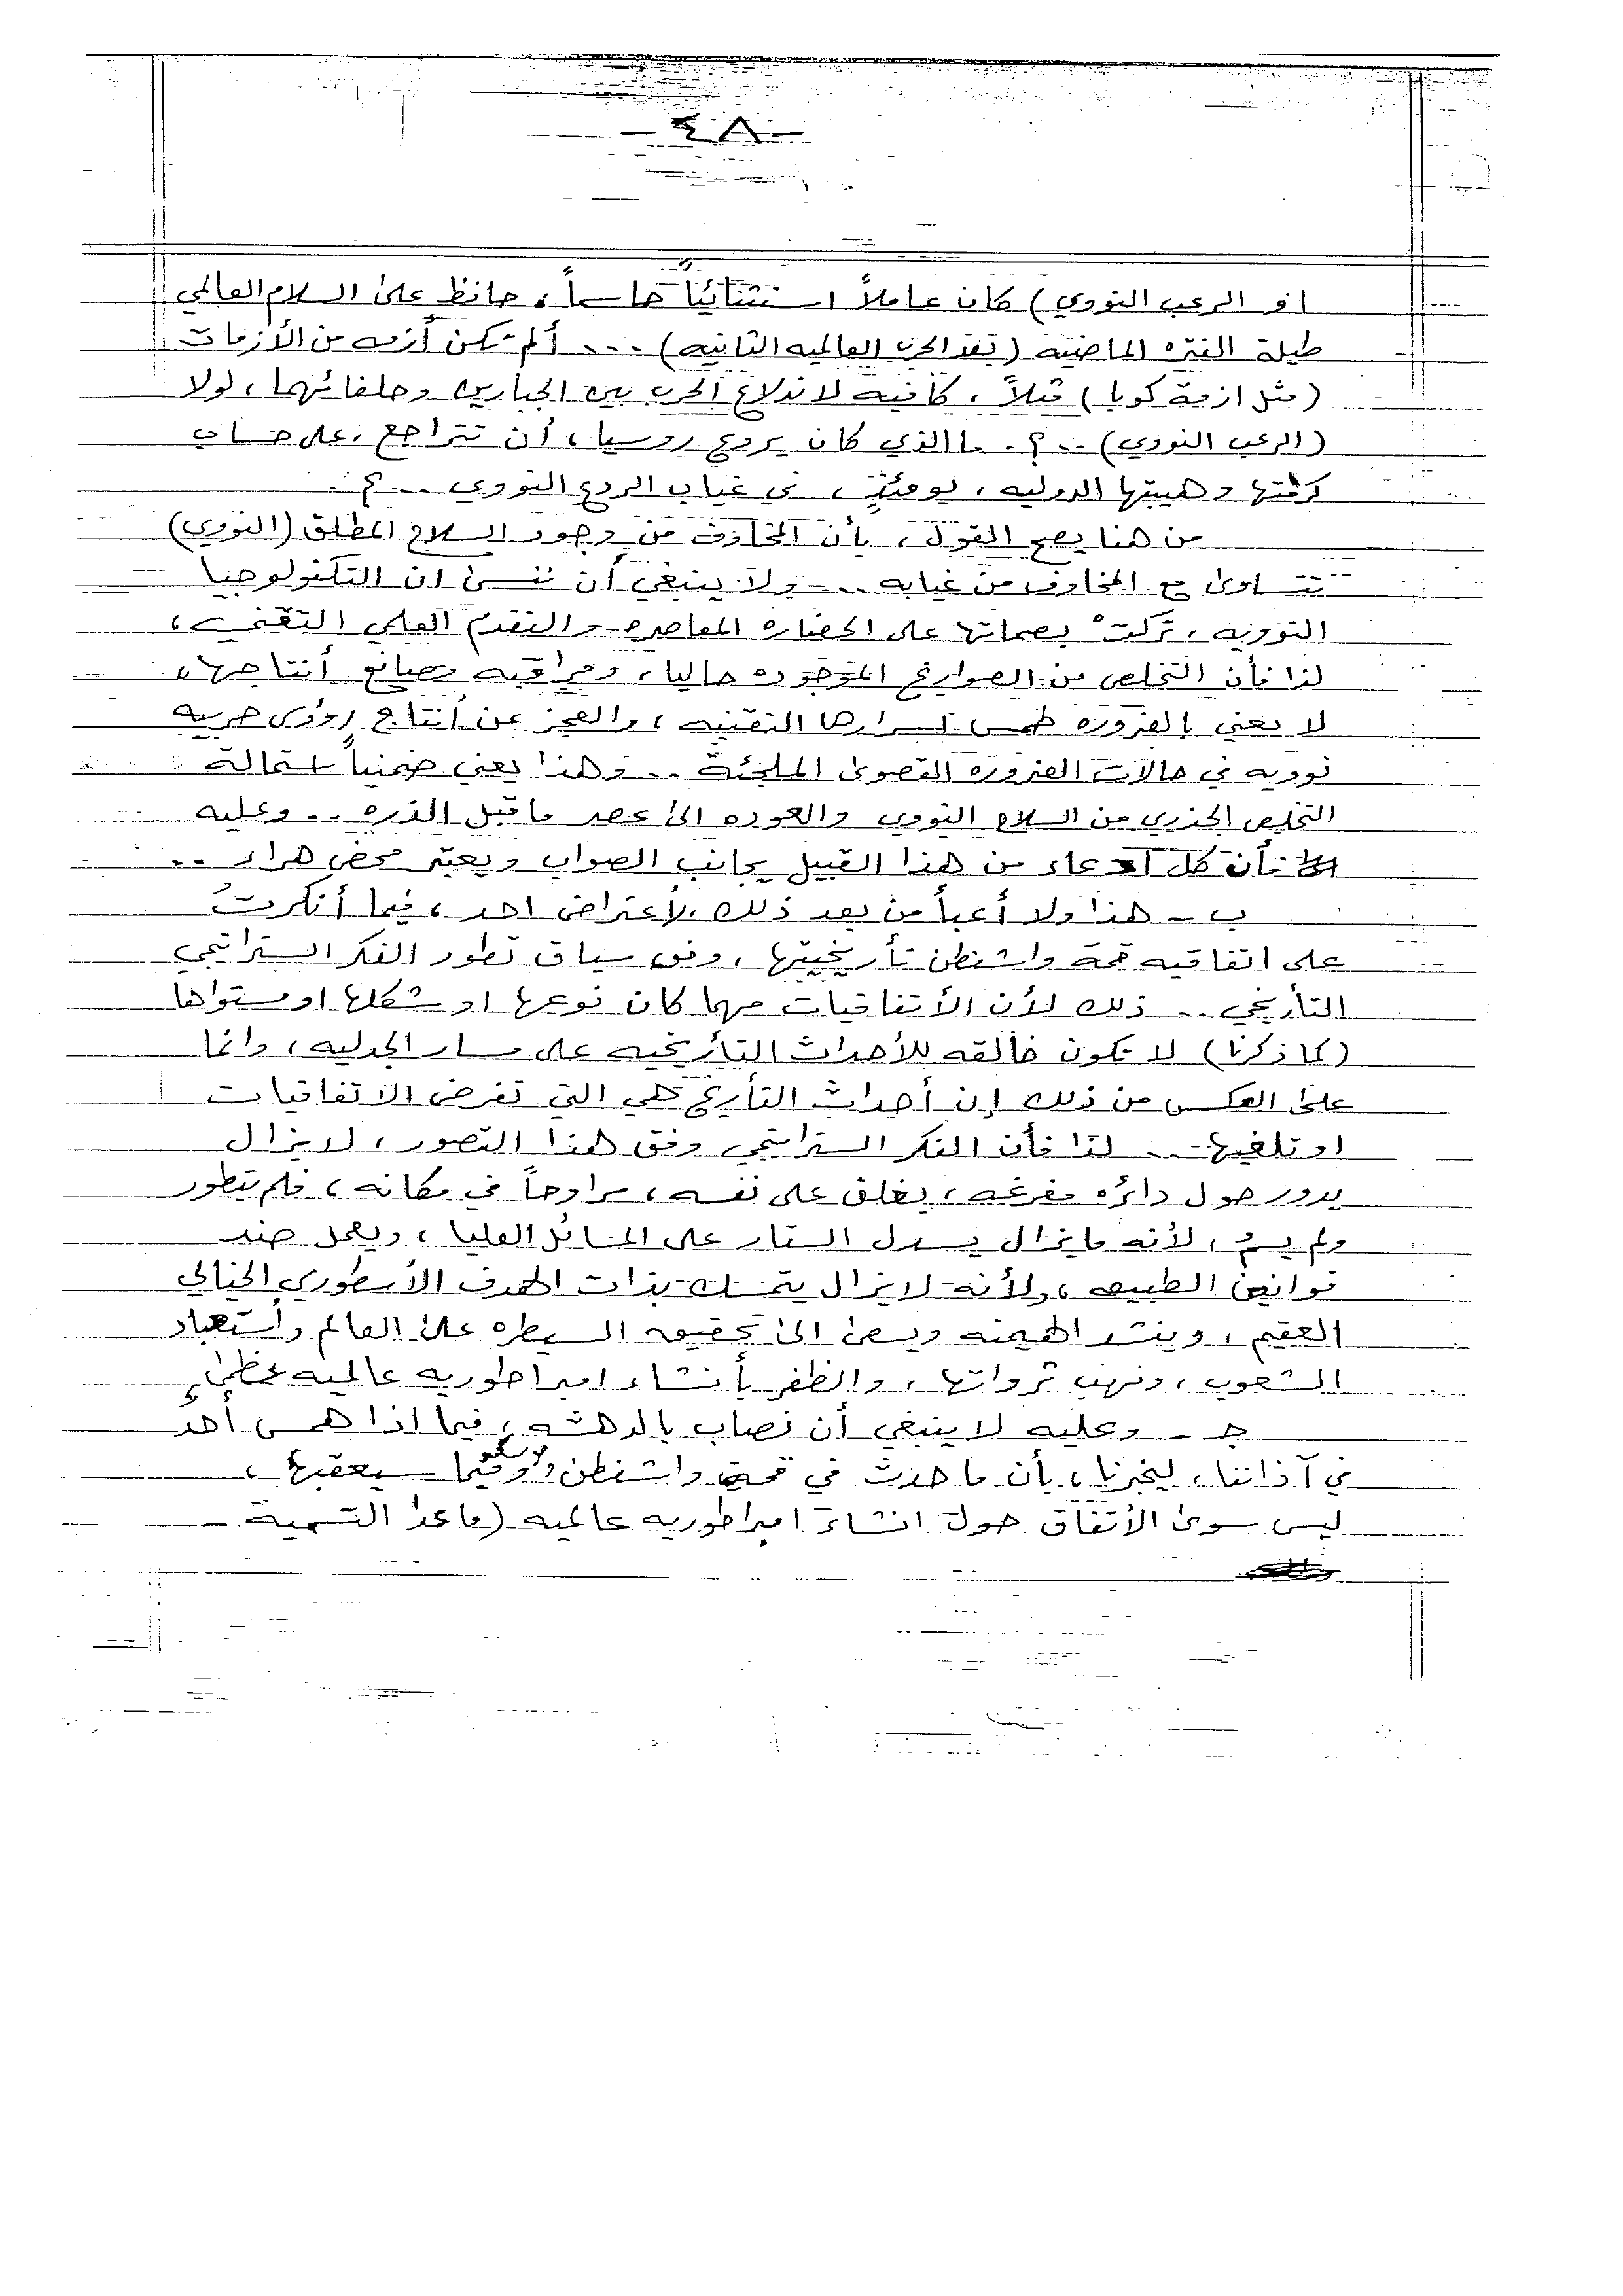 -٤٨-
او الرعب النووي) كان عاملاً استثنائيًا حاسماً، حافظ على السلام العالمي
طيلة الفتره الماضيه (بعد الحرب العالميه الثانيه) ... ألم تكن أزمه من الأزمات
(مثل ازمة كوبا) مثلاً، كافيه لاندلاع الحرب بين الجبارين وحلفائهما، لولا
(الرعب النووي) ..؟. ما الذي كان يردع روسيا، أن تتراجع، على حساب
كرامتها وهيبتها الدوليه، يومئذٍ، في غياب الردع النووي ..؟.
من هنا يصح القول، بأن المخاوف من وجود السلاح المطلق (النووي)
تتساوى مع المخاوف من غيابه .. ولا ينبغي أن ننسى ان التكنولوجيا
النوويه، تركتْ بصماتها على الحضاره المعاصره والتقدم العلمي التقني،
لذا فأن التخلص من الصواريخ الموجوده حاليا، ومراقبه مصانع أنتاجها،
لا يعني بالضروره طمس اسرارها التقنيه، والعجز عن أنتاج رؤوس حربيه
نوويه في حالات الضروره القصوى الملجئة .. وهذا يعني ضمنياً استحالة
التخلص الجذري من السلاح النووي والعوده الى عصر ما قبل الذره .. وعليه
فأن كل ادعاء من هذا القبيل يجانب الصواب ويعتبر محض هراء ..
ب - هذا ولا أعبأ من بعد ذلك، لأعتراض احد، فيما أنكرتُ
على اتفاقيه قمة واشنطن تأريخيتها، وفق سياق تطور الفكر الستراتيجي
التأريخي .. ذلك لأن الأتفاقيات مهما كان نوعها او شكلها او مستواها
(كما ذكرنا) لا تكون خالقه للأحداث التأريخيه على مسار الجدليه، وانما
على العكس من ذلك إن أحداث التأريخ هي التي تفرض الاتفاقيات
او تلغيها .. لذا فأن الفكر الستراتيجي وفق هذا التصور، لايزال
يدور حول دائره مفرغه، يغلق على نفسه، مراوحاً في مكانه، فلم يتطور
ولم يسمُ، لأنه ما يزال يسدل الستار على المسائل العليا، ويعمل ضد
قوانين الطبيعه، ولأنه لايزال يتمسك بذات الهدف الأسطوري الخيالي
العقيم، وينشد الهيمنه ويسعى الى تحقيق السيطره على العالم وأستعباد
الشعوب، ونهب ثرواتها، والظفر بأنشاء امبراطوريه عالميه عظمى،
جـ - وعليه لا ينبغي أن نصاب بالدهشه، فيما اذا همس أحدٌ
في آذاننا، ليخبرنا، بأن ما حدث في قمة واشنطن وفيما سيعقبها،
ليس سوى الأتفاق حول انشاء امبراطوريه عالميه (ما عدا التسمية -